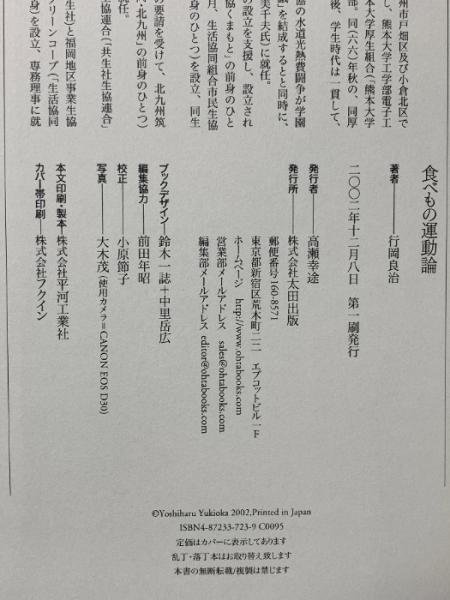 州市戸畑区及び小倉北区で
し、熊本大学工学部電子工
本大学厚生組合（熊本大学
部。同（六六）年秋の、同厚
後、学生時代は一貫して、
協の水道光熱費闘争が学園
議」を結成するとと同時に、
美子夫氏）に就任。
の設立を支援し、設立され
協くまもと」の前身のひと
月、生活協同組合市民生協
身のひとつ）を設立、同生
の要請を受けて、北九州筑
ハ・北九州」の前身のひとつ）
就任。
生協連合（「共生社生協連合」
生社」と福岡地区事業生協
グリーンコープ（「生活協同
身を設立、専務理事に就
食べもの運動論
著者――行岡良治
二〇〇二年十二月八日 第一刷発行
発行者――高瀬幸途
発行所――株式会社太田出版
郵便番号160-8571
東京都新宿区荒木町二二 エプコットビル一F
ホームページ http://www.ohtabooks.com
営業部メールアドレス sales@ohtabooks.com
編集部メールアドレス editor@ohtabooks.com
ブックデザイン――鈴木一誌＋中里岳広
編集協力――前田年昭
校正――小原節子
写真――大木茂（使用カメラ＝CANON EOS D30）
本文印刷・製本――株式会社平河工業社
カバー・帯印刷――株式会社フクイン
©Yoshiharu Yukioka 2002,Printed in Japan
ISBN4-87233-723-9 C0095
定価はカバーに表示してあります
乱丁・落丁本はお取り替え致します
本書の無断転載/複製は禁じます